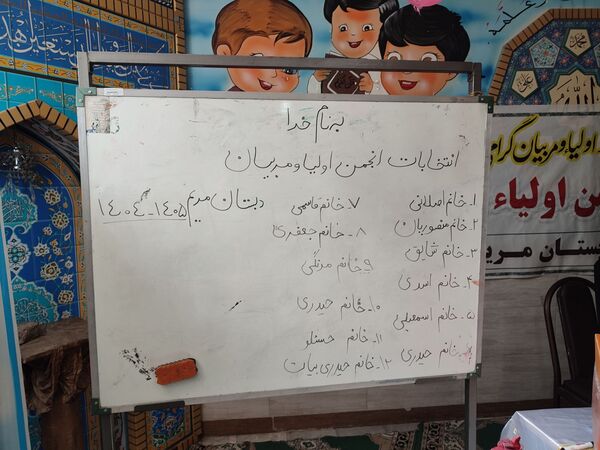 بنام خدا
انتخابات انجمن اولیا و مربیان
دبستان مریم ۱۴۰۵-۱۴۰۴
۱. خانم اصلانی
۲. خانم منصوریان
۳. خانم شایق
۴. خانم اسدی
۵. خانم اسمعیلی
خانم حیدری
۷. خانم قاسمی
۸. خانم جعفری
۹. خانم
۱۰. خانم حیدری
۱۱. خانم حسنلو
۱۲. خانم حیدری بیات
اولیاء و مربیان گرامی
ن اولیاء
ستان مریم
الله
محمد